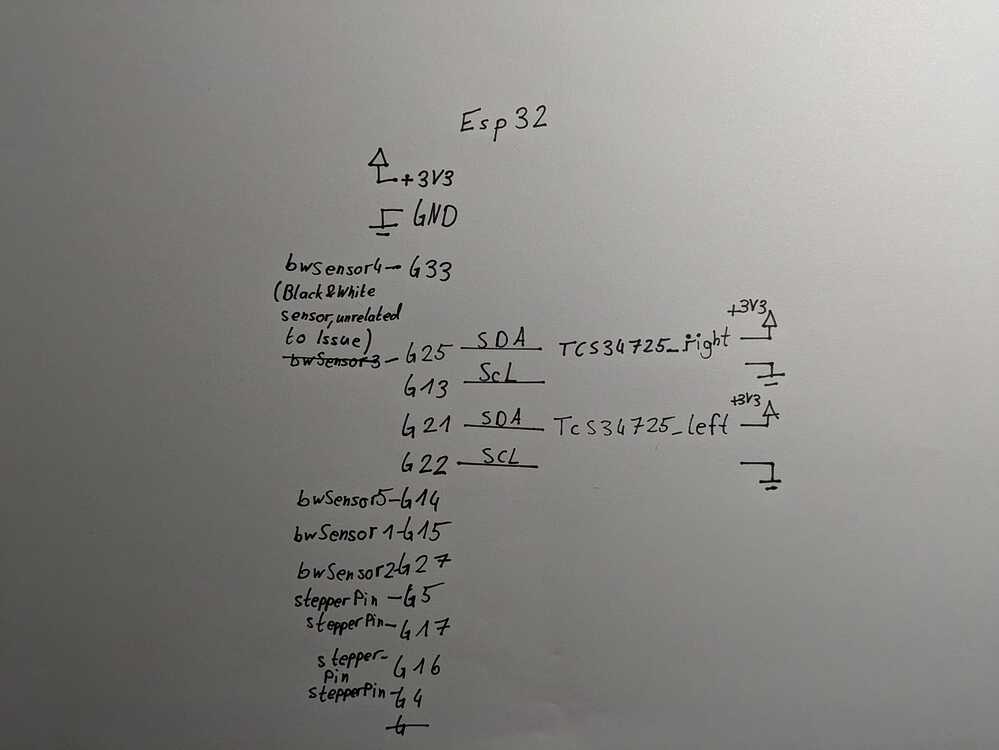 Esp32
+3V3
GND
bwsensor4 - G33
(Black&White
sensor, unrelated
to Issue)
+3V3
bwSensor3 - G25 SDA TCS34725_right
G13 SCL
+3V3
G21 SDA TCS34725_left
G22 SCL
bwSensor5 - G14
bwSensor1 - G15
bwSensor2 - G27
stepperPin - G5
stepperPin - G17
stepper-
Pin G16
stepperPin - G4
G